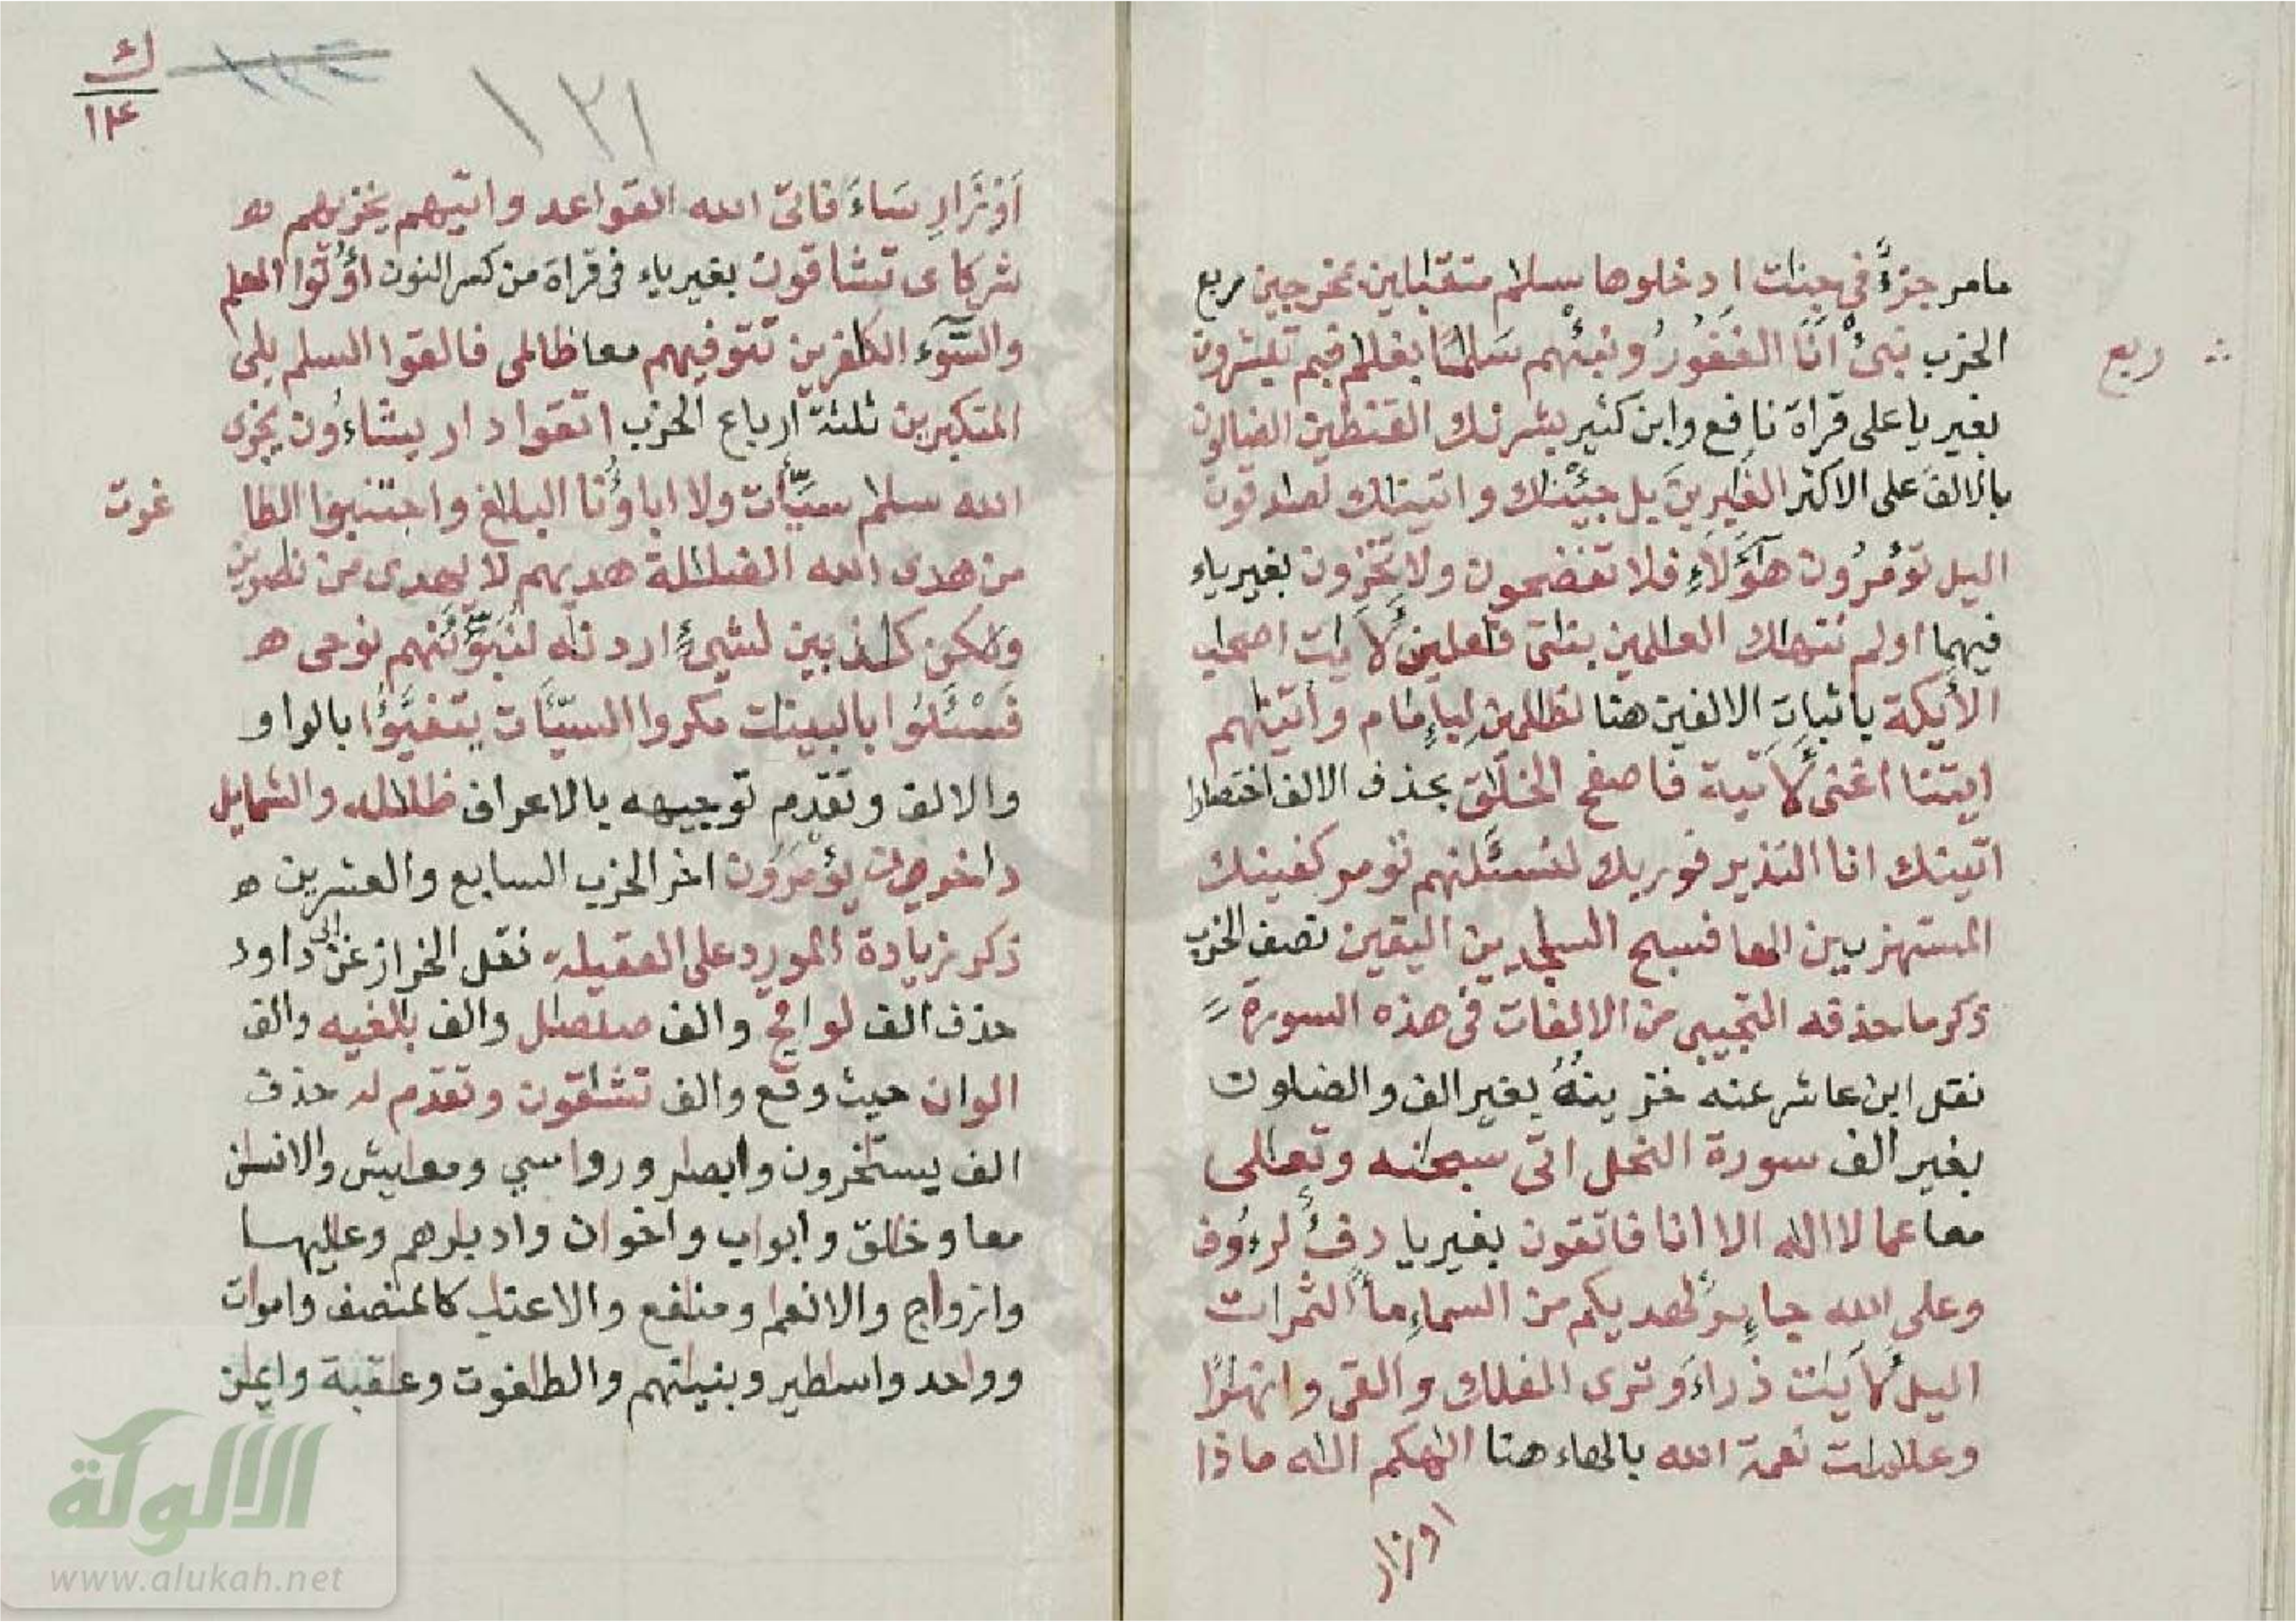 مامر جزءٌ في جنات ادخلوها بسلم متقبلين بمخرجين ربع
ربع
الحزب نبئ أنا الغفور ونبئهم سلما بغلم فبم تبشرون
بغير يا على قراة نافع وابن كثير بشرنك القنطين الضالون
بالالف على الاكثر الغبرين بل جئنك واتينك لصدقون
اليل تؤمرون هؤلاء فلا تفضحون ولا تخزون بغير ياء
فيهما اولم ننهك العلمين بناتي فعلين لأيت اصحب
الأيكة باثبات الالفين هنا لظلمين لبإمام وأتينهم
ايتنا اغنى لأتية فاصفح الخلق بحذف الالف اختصارا
اتينك انا النذير فوربك لنسئلنهم تومر كفينك
المستهزءين الها فسبح السجدين اليقين نصف الحزب
ذكر ما حذفه التجيبي من الالفات في هذه السورة
نقل ابن عاشر عنه خزينه بغير الف والضلون
بغير الف سورة النحل اتى سبحنه وتعلى
معا عما لا اله الا انا فاتقون بغير يا دفء لرءوف
وعلى الله جاير لهديكم من السماء ماء الثمرات
اليل لأيت ذرأ وترى الفلك والقى وانهرا
وعلمت نعمة الله بالهاء هنا الهكم اله ماذا
اوزار
ك
١٤
١٢١
أوزار ساء فاتى الله القواعد واتيهم يخزيهم ه
شركاى تشاقون بغير ياء في قراة من كسر النون اوتوا العلم
والسوء الكفرين تتوفيهم معا ظالمى فالقوا السلم بلى
المتكبرين ثلثة ارباع الحزب اتقوا دار يشاءون يجزى
الله سلم سيئات ولا اباؤنا البلغ واجتنبوا الطا
غوت
من هدى الله الضللة هديهم لا يهدى من نصرين
ولكن كذبين لشيء اردنه لنبوئنهم نوحى ه
فسئلوا بالبينت مكروا السيئات يتفيؤا بالواو
والالف وتقدم توجيهه بالاعراف ظلله والشمايل
داخرون يؤمرون اخر الحزب السابع والعشرين ه
ذكر زيادة المورد على العقيلة نقل الخراز عن ابى داود
حذف الف لواقح والف صلصل والف بلغيه والف
الوان حيث وقع والف تشقون وتقدم له حذف
الف يستخرون وابصر ورواسي ومعايش والانسن
معا وخلق وابواب واخوان وادبرهم وعليها
وازواج والانعم ومنفع والاعنب كالمنصف واموات
وواحد واسطير وبنينهم والطغوت وعقبة وايمن
الألوكة
www.alukah.net